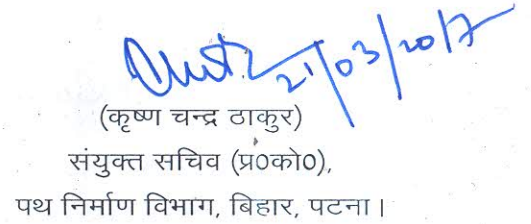 21/03/2017
(कृष्ण चन्द्र ठाकुर)
संयुक्त सचिव (प्र०को०),
पथ निर्माण विभाग, बिहार, पटना।